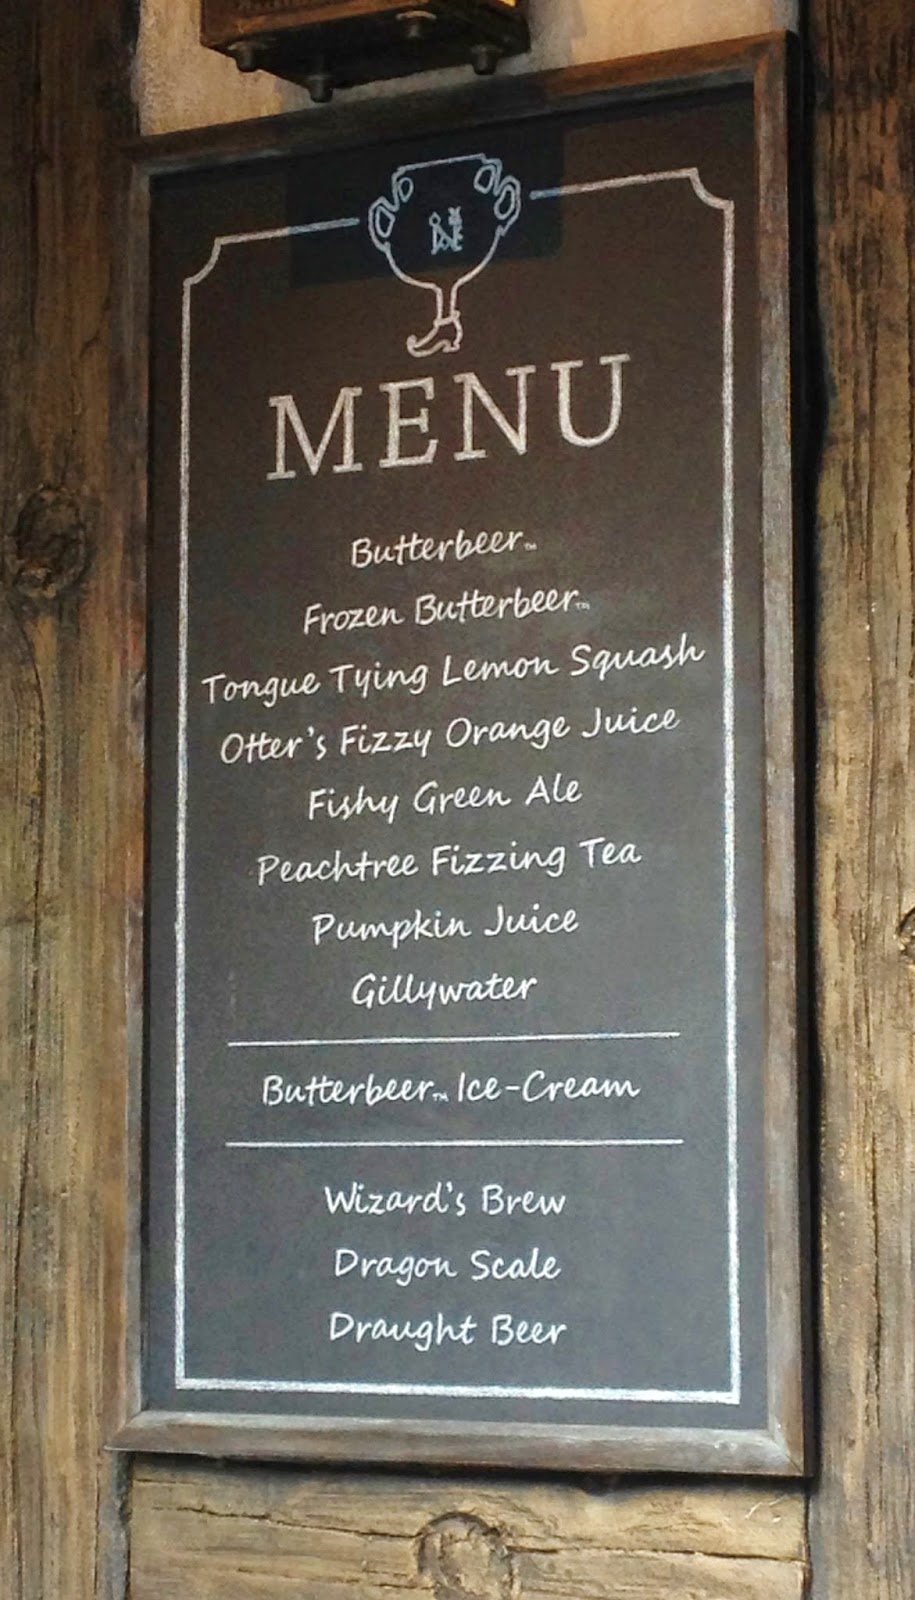 MENU
Butterbeer™
Frozen Butterbeer™
Tongue Tying Lemon Squash
Otter's Fizzy Orange Juice
Fishy Green Ale
Peachtree Fizzing Tea
Pumpkin Juice
Gillywater
Butterbeer™ Ice-Cream
Wizard's Brew
Dragon Scale
Draught Beer